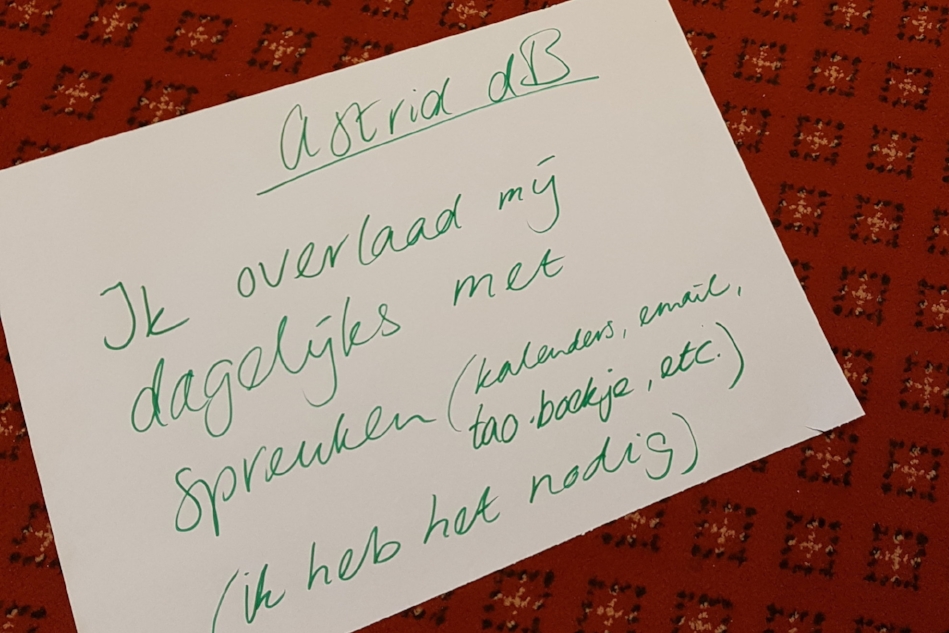 Astrid dB
Ik overlaad mij
dagelijks met
spreuken (kalenders, email,
tao-boekje, etc.)
(ik heb het nodig)